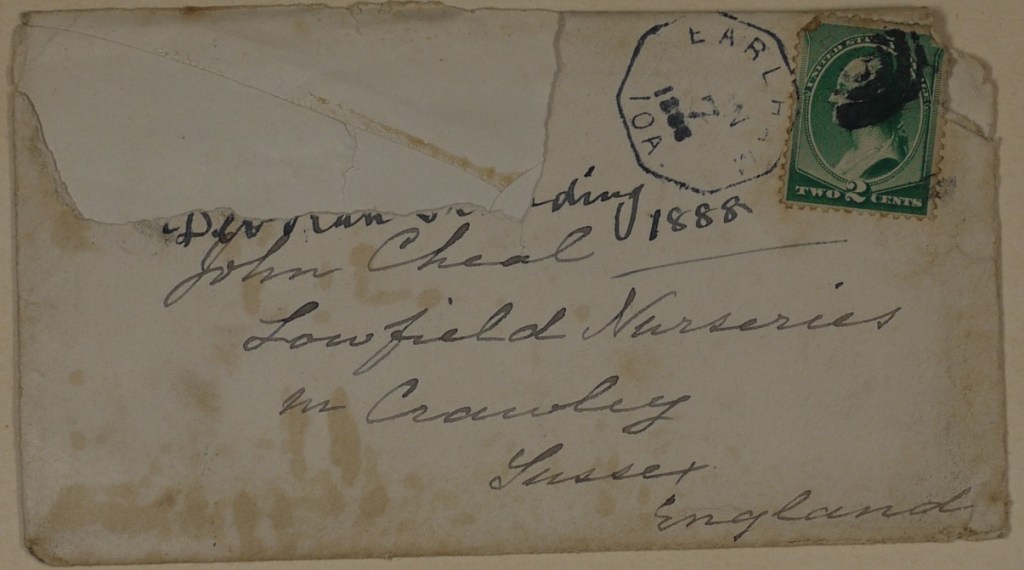 EARLHAM
1888
IOA.
UNITED STATES
TWO 2 CENTS
1888
John Cheal
Lowfield Nurseries
nr Crawley
Sussex
England